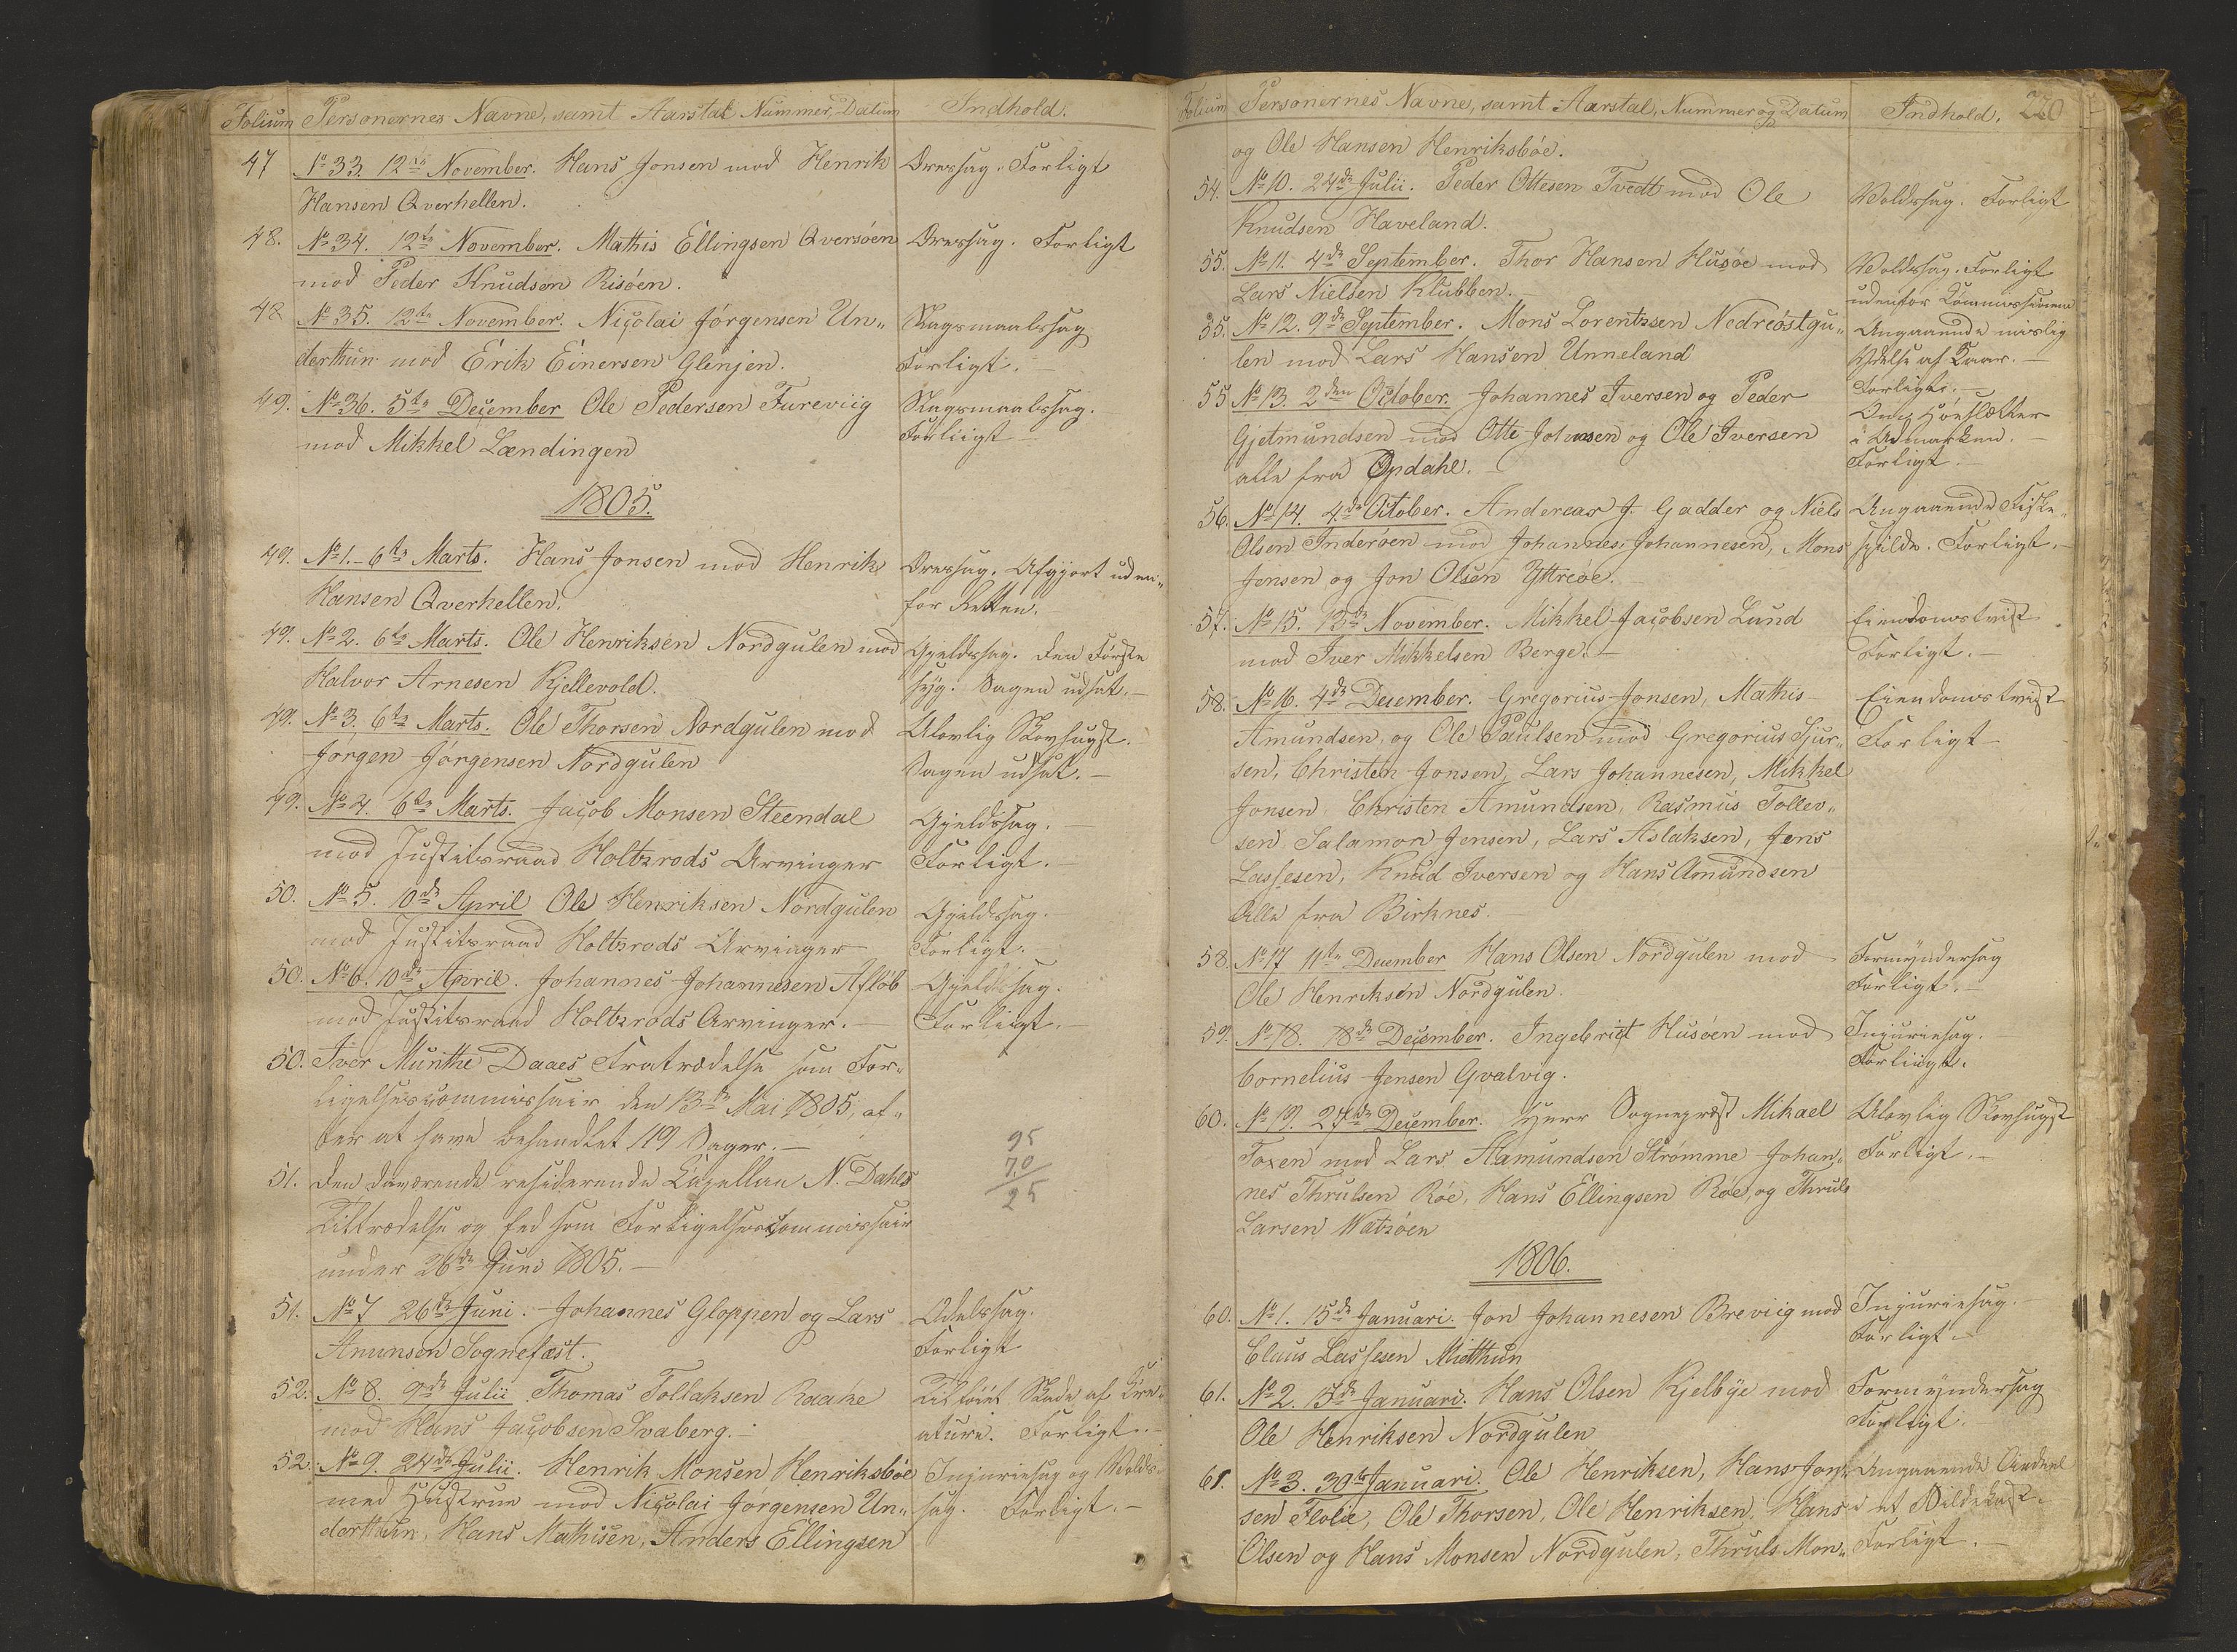 Folium Personernes Navne, samt Aarstal Nummer, Datum Indhold.
47 No 33. 12te November. Hans Jonsen mod Henrik Oresag. Forligt
Hansen Qverhellen.
48. No 34. 12te November. Mathis Ellingsen Qversöen Oresag. Forligt
mod Peder Knudsen Risöen.
48 No 35. 12te November. Niçolai Jörgensen Un„ Slagsmaalssag
derthun mod Erik Einersen Glenjen. Forligt. —
49. No 36. 5te December Ole Pedersen Fureviig Slagsmaalssag.
mod Mikkel Lændingen Forliigt —
1805.
49. No 1. – 6te Marts. Hans Jonsen mod Henrik Oresag. Afgjort uden„
Hansen Qverhellen. for Retten. —
49. No 2. 6te Marts. Ole Henriksen Nordgulen mod Gjeldssag. Den Förste
Halvor Arnesen Kjellevold. syg. Sagen udsat. —
49. No 3. 6te Marts. Ole Thorsen Nordgulen mod Ulovlig Skovhugst. —
Jörgen Jörgensen Nordgulen Sagen udsat. —
49. No 4. 6te Marts. Jaçob Monsen Steendal Gjeldssag. —
mod Justitsraad Holtzrods Arvinger Forligt. —
50. No 5. 10de April Ole Henriksen Nordgulen Gjeldssag. —
mod Justitsraad Holtzrods Arvinger Forligt. —
50. No 6. 10de April. Johannes Johannesen Aflöb Gjeldssag.
mod Justitsraad Holtzrods Arvinger. — Forligt. —
50. Iver Munthe Daaes Fratrædelse som For„
ligelsescommissair den 13de Mai 1805, ef„
ter at have behandlet 119 Sager. — 95
51. Den daværende residerende Capellan N. Dahls 70
Tiltrædelse og Eed som Forligelsescommissair 25
under 26de Juni 1805. —
51. No 7 26de Juni. Johannes Gloppen og Lars Odelssag.
Anunsen Sognefæst. Forligt
52. No 8. 9de Julii Thomas Tollaksen Raake Tilföiet Skade af Cre„
mod Hans Jaçobsen Svaberg. — aturi. Forligt. —
52. No 9. 24de Julii. Henrik Monsen Henriksböe Injuriesag og Volds„
med Hustrue mod Niçolai Jörgensen Un„ sag. Forligt. —
derthun, Hans Mathisen, Anders Ellingsen
Folium Personernes Navne, samt Aarstal, Nummer og Datum Indhold. 220
og Ole Hansen Henriksböe.
54. No 10. 24de Julii. Peder Ottesen Tvedt mod Ole Voldssag. Forligt
Knudsen Haveland.
55. No 11. 4de September. Thor Hansen Husöe mod Voldssag. Forligt
Lars Nielsen Klubben. — udenfor Commissionen
55. No 12. 9de September. Mons Lorentzsen Nedreöstgu„ Angaaende
len mod Lars Hansen Unneland Ydelse af Kaar. —
55 No 13. 2den October. Johannes Iversen og Peder Forligt. —
Gjetmundsen mod Otte Johnsen og Ole Iversen Om Höeslætter
alle fra Opdahl. — i Udmarken. —
Forligt. —
56. No 14. 4de October. Andereas J. Gadder og Niels Angaaende Fiske„
Olsen Inderöen mod Johannes Johannesen, Mons sprilde. Forligt. —
Jensen og Jon Olsen Yttreöe. —
57. No 15. 13de November. Mikkel Jaçobsen Lund Eiendomstvist
mod Iver Mikkelsen Berge. — Forligt. —
58. No 16. 4de December. Gregorius Jonsen, Mathis Eiendomstvist
Amundsen, og Ole Paulsen mod Gregorius Sjur„ Forligt —
sen, Christen Jonsen, Lars Johannesen, Mikkel
Jonsen, Christen Amundsen, Rasmus Tollev„
sen, Salamon Jensen, Lars Aslaksen, Jens
Lassesen, Knud Iversen og Hans Amundsen
Alle fra Birknes.
58. No 17 11te December Hans Olsen Nordgulen mod Formyndersag
Ole Henriksen Nordgulen. Forligt. —
59. No 18. 18de December. Ingebrigt Husöen mod Injuriesag.
Cornelius Jensen Qvalvig. Forliigt.
60. No 19. 27de December. Herr Sognepræst Mikael Ulovlig Skovhugst
Foxen mod Lars Aamundsen Strömme Johan„ Forligt. —
nes Thrulsen Röe, Hans Ellingsen Röe, og Thruls
Larsen Watzöen
1806.
60. No 1. 15de Januari. Jon Johannesen Breviig mod Injuriesag. —
Claus Lassesen Mietthun Forligt —
61. No 2. 15de Januari. Hans Olsen Kjelbye mod Formyndersag
Ole Henriksen Nordgulen Forligt.
61. No 3. 30te Januari. Ole Henriksen, Hans Jon„ Angaaende Andeel
sen Flolie, Ole Thorsen, Ole Henriksen, Hans i et Sildekast.
Olsen og Hans Monsen Nordgulen, Thruls Mon„ Forligt. —